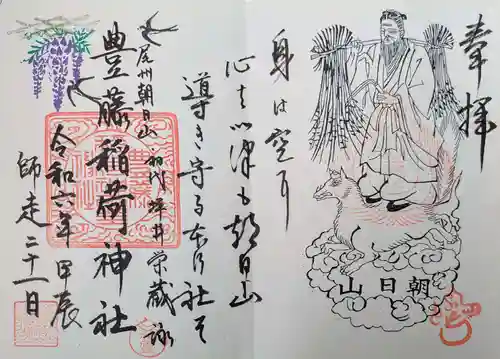 奉拝
朝日山
身は空耳
心は以津も朝日山
導き守る 社そ
尾州朝日山 初代 坪井栄蔵詠
豊藤稲荷神社
令和六年甲辰
師走二十一日